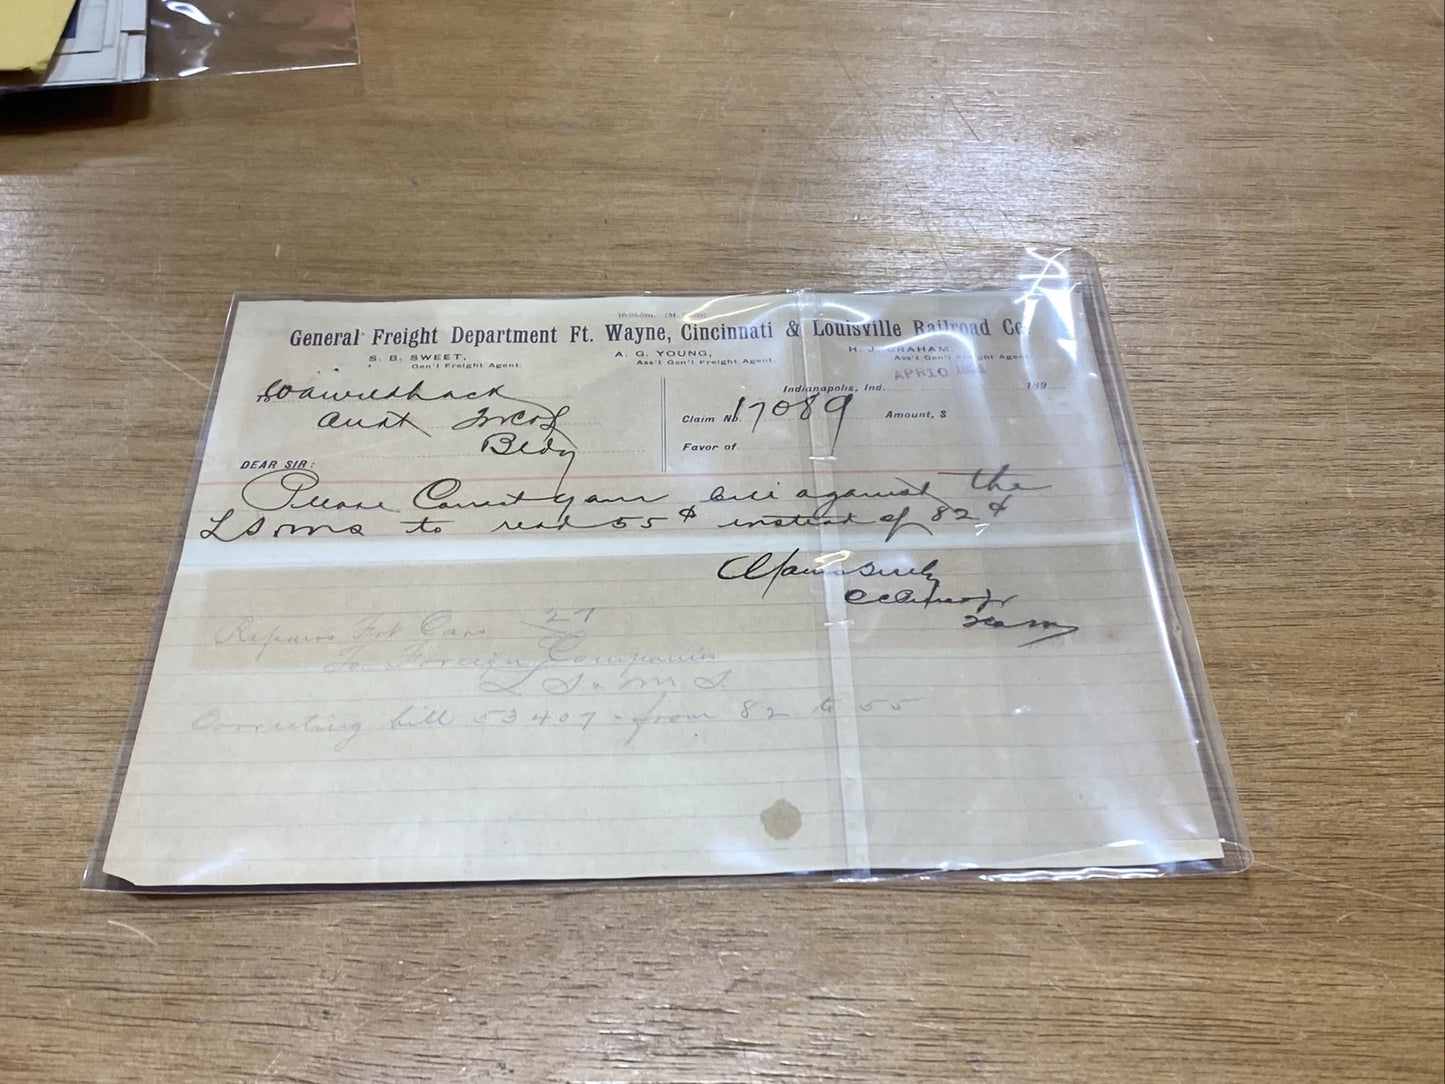 General Freight Department Ft. Wayne, Cincinnati & Louisville Railroad Co.
S. B. SWEET, A. G. YOUNG, H. J. GRAHAM,
Gen'l Freight Agent. Ass't Gen'l Freight Agent. Ass't Gen'l Freight Agent
Indianapolis, Ind. APR 10 189
Claim No. 17089 Amount, $
Bldg
Favor of
DEAR SIR:
Please Correct your bill against the
LS&MS to read 55¢ instead of 82¢
Yours truly
Repairs Frt Cars 27
To Foreign Companies
L. S & M S.
Correcting bill 53407 - from 82 to 55